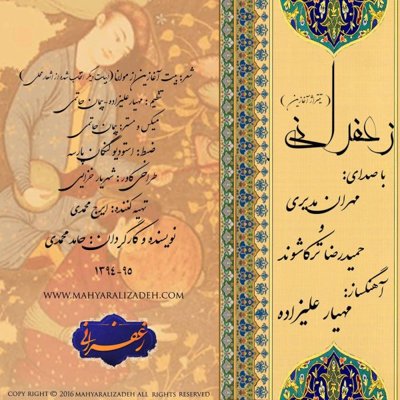 زعفرانی
(تیتراژ آغازین)
با صدای:
مهران مدیری
و
حمیدرضا ترکاشوند
آهنگساز:
مهیار علیزاده
شعر: بیت آغازین از مولانا (ابیات دیگر انتخاب شده از اشعار محلی)
تنظیم: مهیار علیزاده-پیمان حاتمی
میکس و مستر: پیمان حاتمی
ضبط: استودیو کنگان، پارسه
طراحی کاور: شهریار خزایی
تهیه کننده: ایرج محمدی
نویسنده و کارگردان: حامد محمدی
۱۳۹۴-۹۵
WWW.MAHYARALIZADEH.COM
زعفرانی
COPY RIGHT © 2016 MAHYARALIZADEH ALL RIGHTS RESERVED